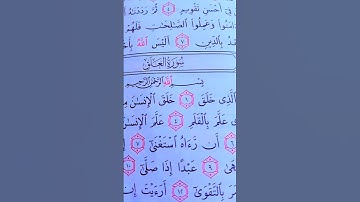 فِىٓ أَحْسَنِ تَقْوِيمٍ ٤ ثُمَّ رَدَدْنَـٰهُ
ءَامَنُوا۟ وَعَمِلُوا۟ ٱلصَّـٰلِحَـٰتِ فَلَهُمْ
بَعْدُ بِٱلدِّينِ ٧ أَلَيْسَ ٱللَّهُ
سُورَةُ الْعَلَقِ
بِسْمِ ٱللَّهِ ٱلرَّحْمَـٰنِ ٱلرَّحِيمِ
ٱلَّذِى خَلَقَ ١ خَلَقَ ٱلْإِنسَـٰنَ
عَلَّمَ بِٱلْقَلَمِ ٤ عَلَّمَ ٱلْإِنسَـٰنَ
٦ أَن رَّءَاهُ ٱسْتَغْنَىٰٓ ٧
٩ عَبْدًا إِذَا صَلَّىٰٓ ١٠
بِٱلتَّقْوَىٰٓ ١٢ أَرَءَيْتَ إِن